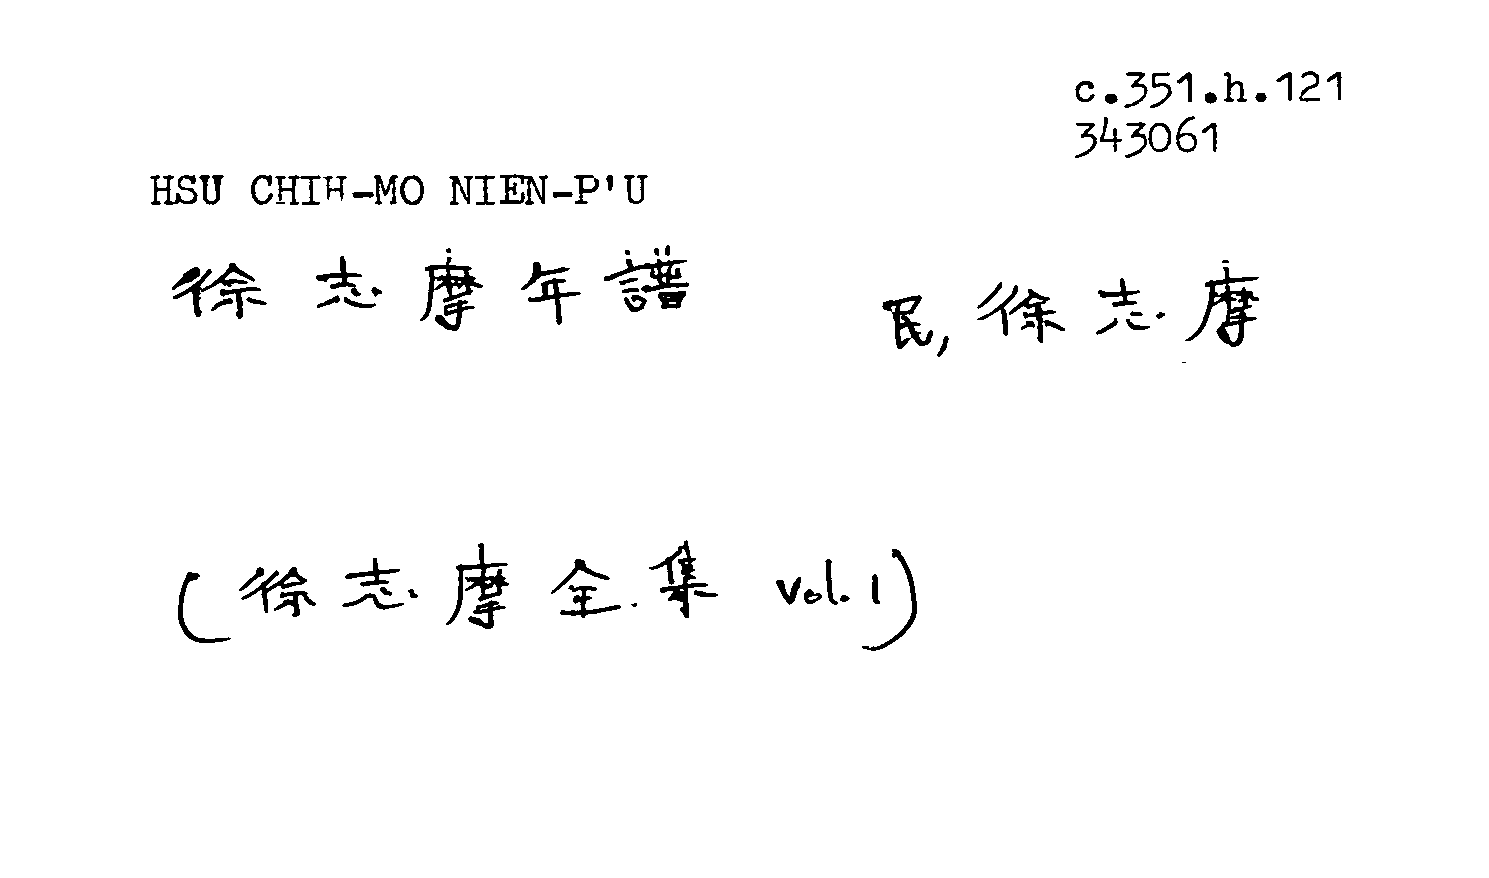 c.351.h.121
343061
HSU CHIH-MO NIEN-P'U
徐志摩年譜 民,徐志摩
(徐志摩全集 vol.1)